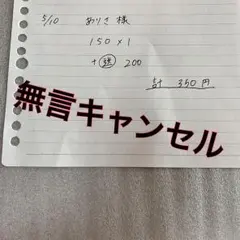 5/10 ありさ 様
150 × 1
+ 送 200
計 350円
無言キャンセル